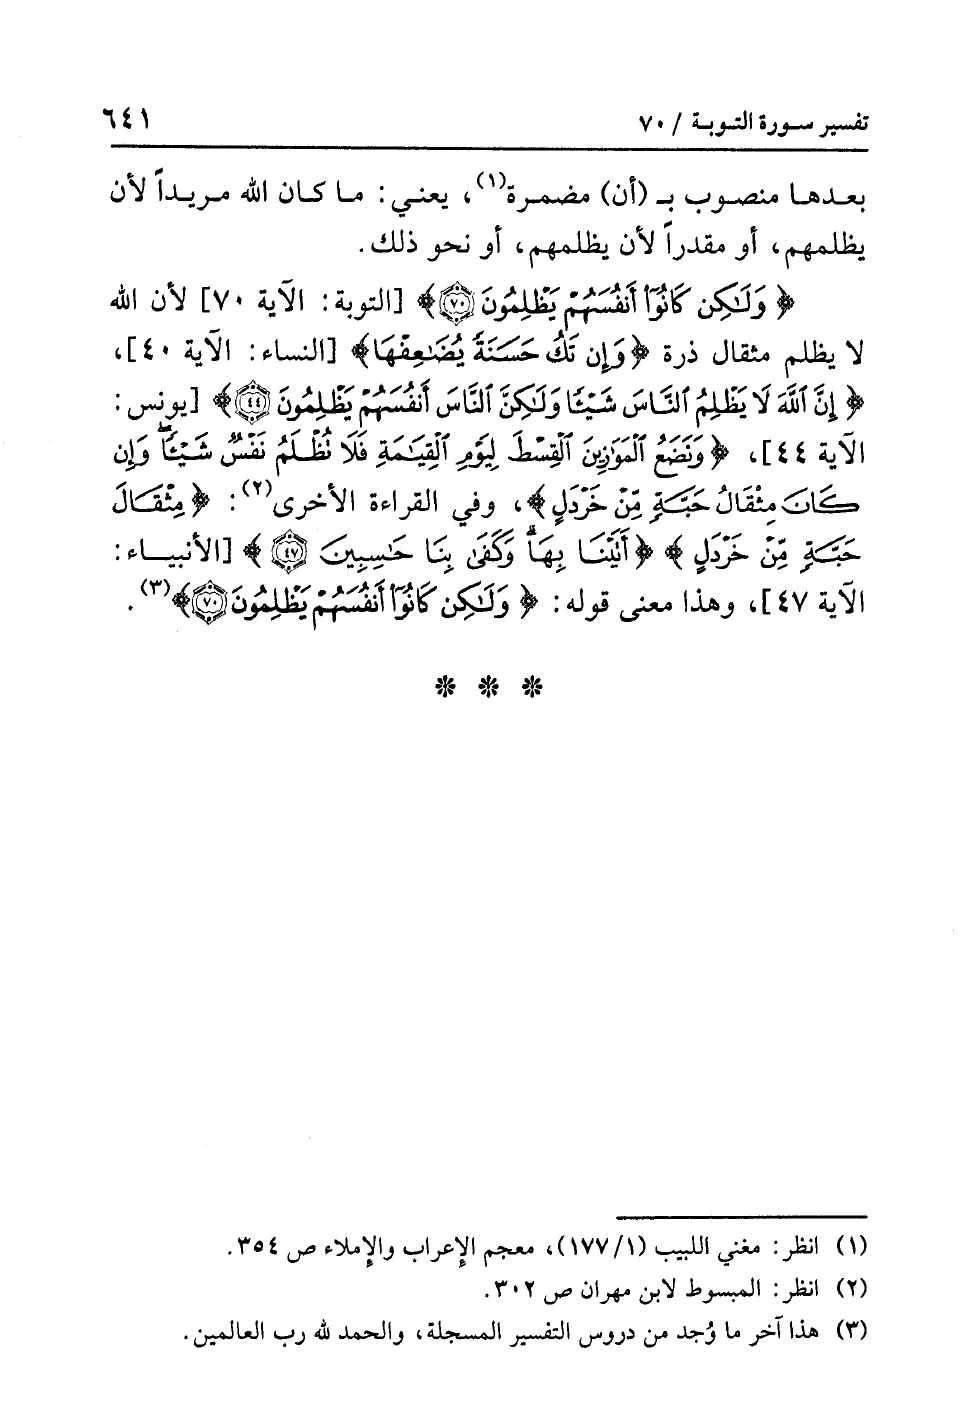 تفسير سورة التوبة / ٧٠ ٦٤١
بعدها منصوب بـ (أن) مضمرة(١)، يعني: ما كان الله مريداً لأن
يظلمهم، أو مقدراً لأن يظلمهم، أو نحو ذلك.
﴿ وَلَٰكِن كَانُوٓا۟ أَنفُسَهُمْ يَظْلِمُونَ ٧٠﴾ [التوبة: الآية ٧٠] لأن الله
لا يظلم مثقال ذرة ﴿وَإِن تَكُ حَسَنَةً يُضَٰعِفْهَا﴾ [النساء: الآية ٤٠]،
﴿ إِنَّ ٱللَّهَ لَا يَظْلِمُ ٱلنَّاسَ شَيْـًٔا وَلَٰكِنَّ ٱلنَّاسَ أَنفُسَهُمْ يَظْلِمُونَ ٤٤﴾ [يونس:
الآية ٤٤]، ﴿وَنَضَعُ ٱلْمَوَٰزِينَ ٱلْقِسْطَ لِيَوْمِ ٱلْقِيَٰمَةِ فَلَا تُظْلَمُ نَفْسٌ شَيْـًٔا ۖ وَإِن
كَانَ مِثْقَالُ حَبَّةٍ مِّنْ خَرْدَلٍ﴾، وفي القراءة الأخرى(٢): ﴿مِثْقَالَ
حَبَّةٍ مِّنْ خَرْدَلٍ﴾ ﴿أَتَيْنَا بِهَا ۗ وَكَفَىٰ بِنَا حَٰسِبِينَ ٤٧﴾ [الأنبياء:
الآية ٤٧]، وهذا معنى قوله: ﴿ وَلَٰكِن كَانُوٓا۟ أَنفُسَهُمْ يَظْلِمُونَ ٧٠﴾(٣).
* * *
(١) انظر: مغني اللبيب (١/١٧٧)، معجم الإعراب والإملاء ص ٣٥٤.
(٢) انظر: المبسوط لابن مهران ص ٣٠٢.
(٣) هذا آخر ما وُجد من دروس التفسير المسجلة، والحمد لله رب العالمين.